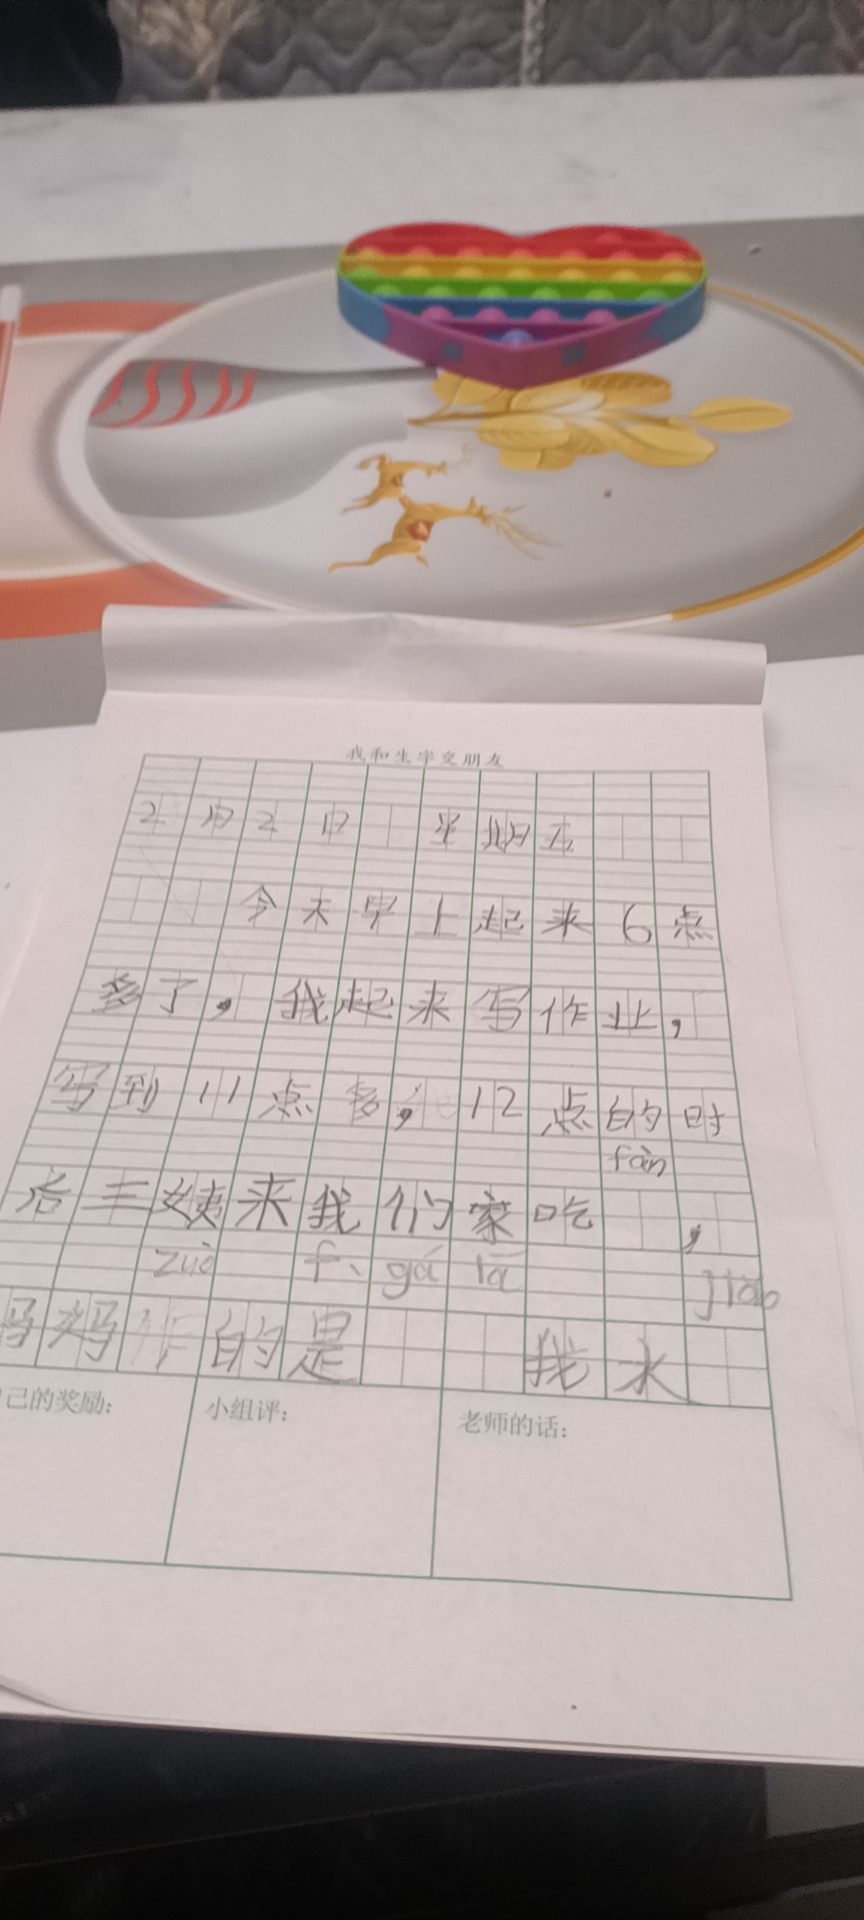 我和生字交朋友
2月2日 半期五
今天早上起来6点
多了，我起来写作业，
写到11点多，12点的时
fàn
后三姨来我们家吃，
zuò f、gá lā jiǎo
妈妈作的是 我水
己的奖励：
小组评：
老师的话：